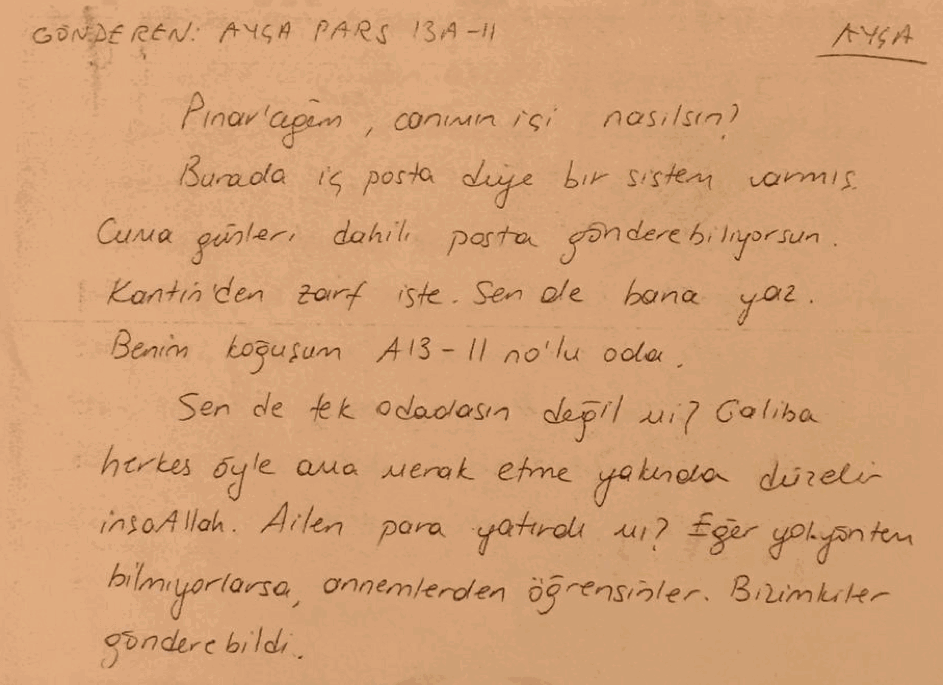 GÖNDEREN: AYÇA PARS 13A-11
AYÇA
Pınar'cığım, canımın içi nasılsın?
Burada iç posta diye bir sistem varmış.
Cuma günleri dahili posta gönderebiliyorsun.
Kantin'den zarf iste. Sen de bana yaz.
Benim koğuşum A13-11 no'lu oda.
Sen de tek odadasın değil mi? Galiba
herkes öyle ama merak etme yakında düzelir
inşaAllah. Ailen para yatırdı mı? Eğer yol yöntem
bilmiyorlarsa, annemlerden öğrensinler. Bizimkiler
gönderebildi.